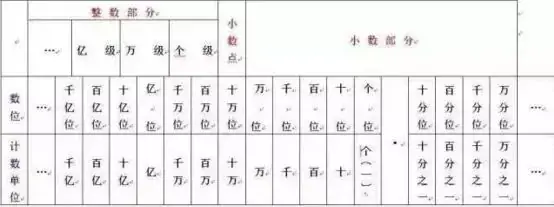 整数部分 小数点 小数部分
… 亿级 万级 个级
数位 … 千亿位 百亿位 十亿位 亿位 千万位 百万位 十万位 万位 千位 百位 十位 个位 · 十分位 百分位 千分位 万分位 …
计数单位 … 千亿 百亿 十亿 亿 千万 百万 十万 万 千 百 十 个(一) 十分之一 百分之一 千分之一 万分之一 …